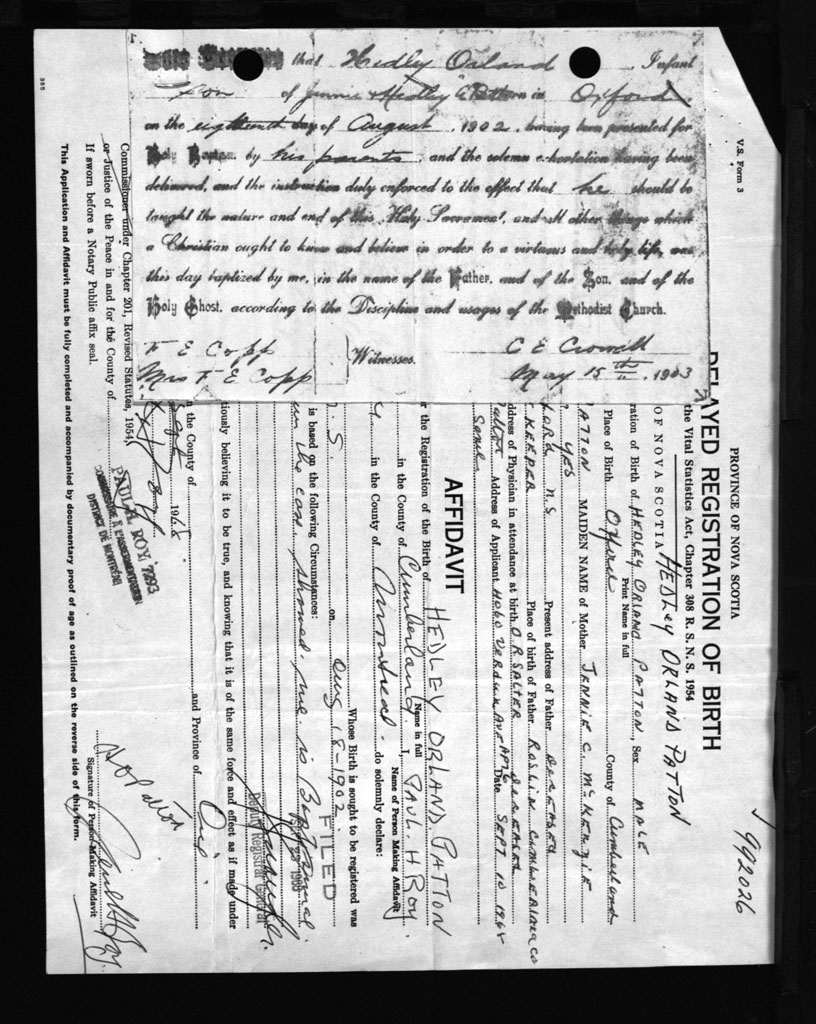 that Hedley Orland, Infant
son of Jennie & Hedley C. Patton born in Oxford,
on the eighteenth day of August, 1902, having been presented for
Holy Baptism by his parents, and the solemn exhortation having been
delivered, and the instruction duly enforced to the effect that he should be
taught the nature and end of this Holy Sacrament, and all other things which
a Christian ought to know and believe in order to a virtuous and holy life, was
this day baptized by me, in the name of the Father, and of the Son, and of the
Holy Ghost, according to the Discipline and usages of the Methodist Church.
F E Copp
Mrs F E Copp
Witnesses.
C E Crowell
May 15th 1903
V.S. Form 3
992026
PROVINCE OF NOVA SCOTIA
DELAYED REGISTRATION OF BIRTH
the Vital Statistics Act, Chapter 308 R. S. N. S. 1954
OF NOVA SCOTIA HEDLEY ORLAND PATTON
ration of Birth of HEDLEY ORLAND PATTON, Sex MALE
Print Name in full
Place of Birth Oxford County of Cumberland
ATTON MAIDEN NAME of Mother JENNIE C. McKENZIE
YES
FORD N.S. Present address of Father DECEASED
KEEPER Place of birth of Father ROSLIN CUMBERLAND CO
ddress of Physician in attendance at birth DR SALTER DECEASED
Patton Address of Applicant VERDUN AVE APT 6 Date SEPT 10 1968
Same
AFFIDAVIT
r the Registration of the Birth of HEDLEY ORLAND PATTON
Name in full
in the County of Cumberland I, PAUL H ROY
Name of Person Making Affidavit
in the County of Montreal do solemnly declare:
Whose Birth is sought to be registered was
N. S. on Aug 18-1902
FILED
is based on the following Circumstances:
showed me is Baptismal
Deputy Registrar General
iously believing it to be true, and knowing that it is of the same force and effect as if made under
n the County of and Province of Que.
Sept 1968
PAUL H. ROY 7293
COMMISSAIRE À L'ASSERMENTATION
DISTRICT DE MONTRÉAL
H O Patton
Paul H Roy
Signature of Person Making Affidavit
Commissioner under Chapter 201, Revised Statutes, 1954,
or Justice of the Peace in and for the County of
If sworn before a Notary Public affix seal.
This Application and Affidavit must be fully completed and accompanied by documentary proof of age as outlined on the reverse side of this form.
385